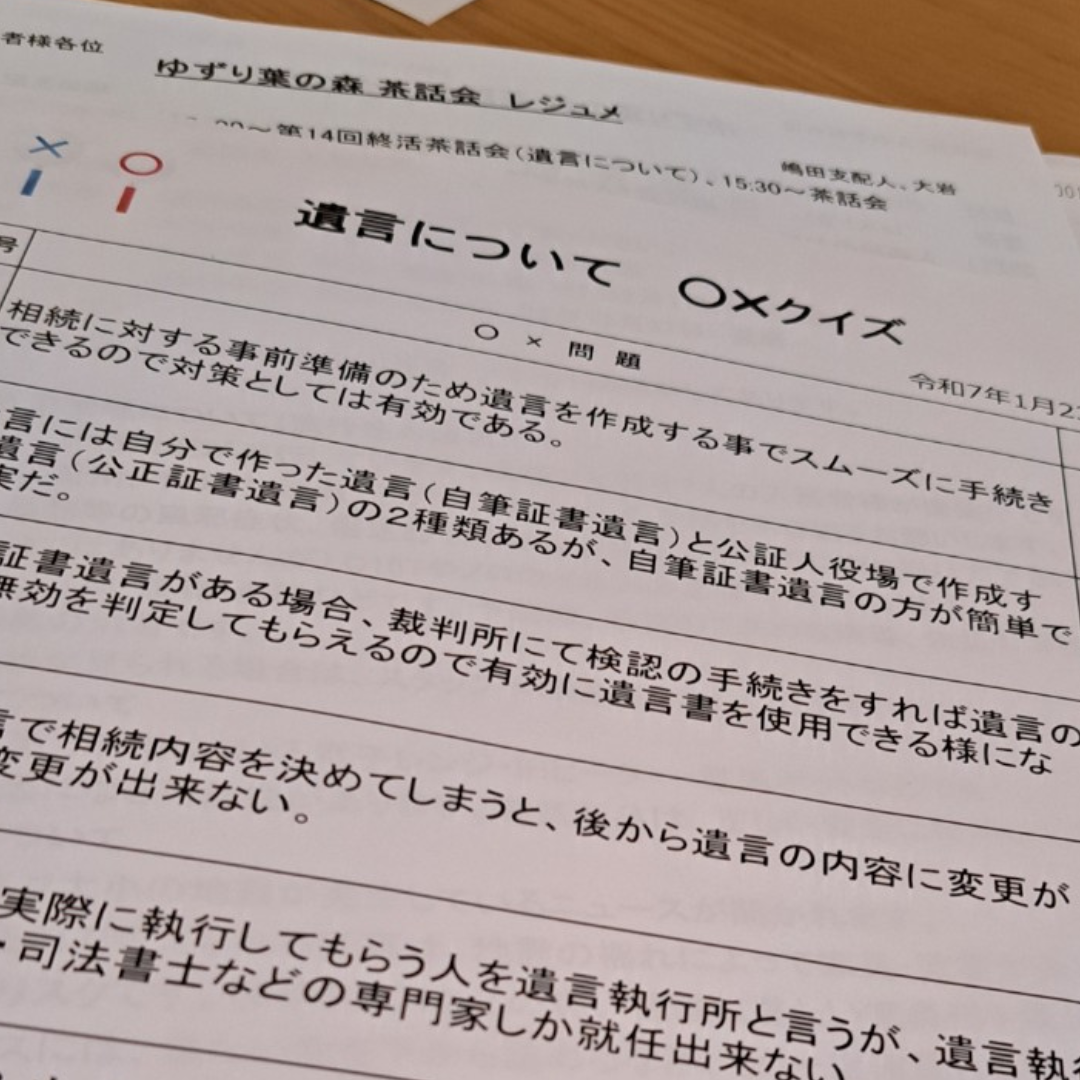 者様各位
ゆずり葉の森 茶話会 レジュメ
嶋田支配人、大岩
00～第14回終活茶話会(遺言について)、15:30～茶話会
× ○
遺言について ○×クイズ
令和7年1月2
号
○ × 問 題
相続に対する事前準備のため遺言を作成する事でスムーズに手続き
できるので対策としては有効である。
言には自分で作った遺言(自筆証書遺言)と公証人役場で作成す
遺言(公正証書遺言)の2種類あるが、自筆証書遺言の方が簡単で
実だ。
証書遺言がある場合、裁判所にて検認の手続きをすれば遺言の
無効を判定してもらえるので有効に遺言書を使用できる様にな
言で相続内容を決めてしまうと、後から遺言の内容に変更が
変更が出来ない。
実際に執行してもらう人を遺言執行所と言うが、遺言執
・司法書士などの専門家しか就任出来ない